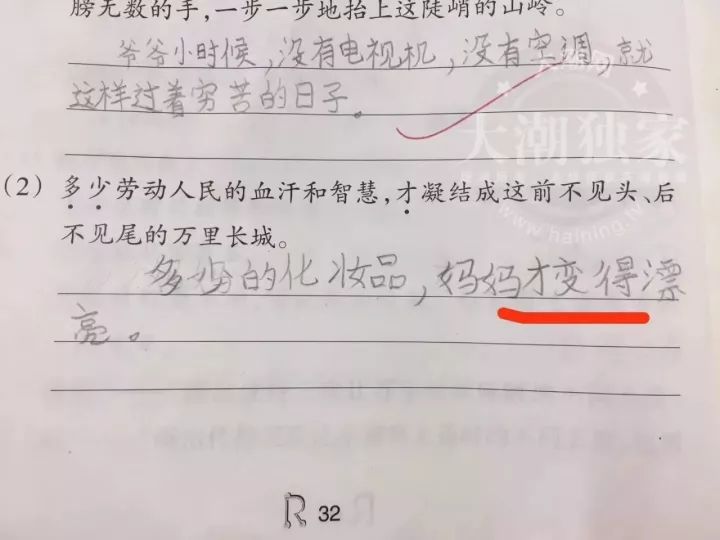 膀无数的手,一步一步地抬上这陡峭的山岭。
爷爷小时候,没有电视机,没有空调,就
这样过着穷苦的日子。
大潮独家
www.haining.tv
(2) 多少劳动人民的血汗和智慧,才凝结成这前不见头、后
不见尾的万里长城。
多少的化妆品,妈妈才变得漂
亮。
32